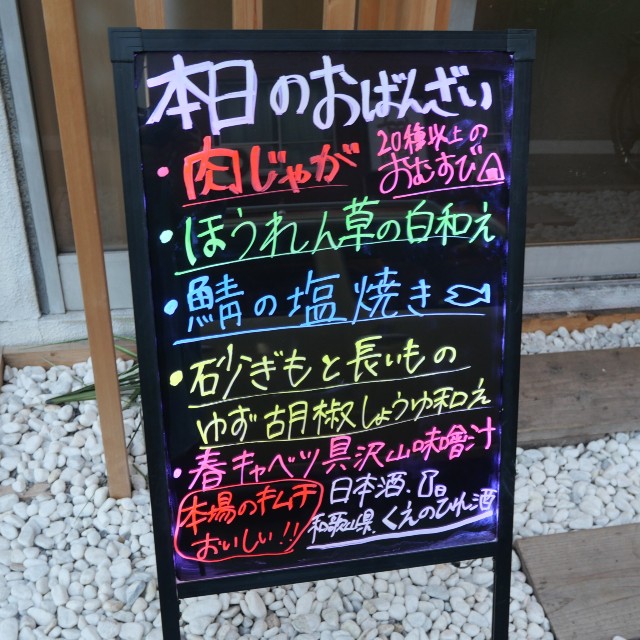 本日のおばんざい
・肉じゃが
20種以上の
おむすび
・ほうれん草の白和え
・鯖の塩焼き
・砂ぎもと長いもの
ゆず胡椒しょうゆ和え
・春キャベツ具沢山味噌汁
本場のキムチ
おいしい!!
日本酒.
和歌山県 くえのひれ酒